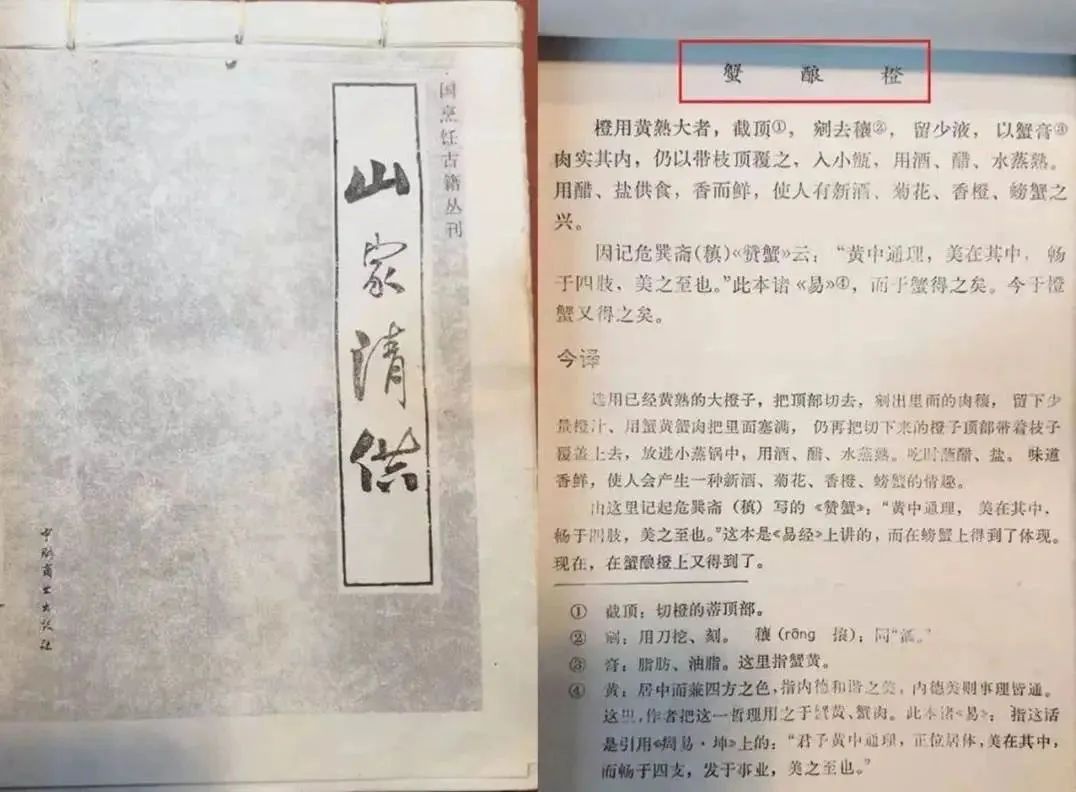 国烹饪古籍丛刊
山家清供
中国商业出版社
蟹 酿 橙
橙用黄熟大者，截顶①，剜去穰②，留少液，以蟹膏③
肉实其内，仍以带枝顶覆之，入小甑，用酒、醋、水蒸熟。
用醋、盐供食，香而鲜，使人有新酒、菊花、香橙、螃蟹之
兴。
因记危巽斋(稹)《赞蟹》云：“黄中通理，美在其中，畅
于四肢、美之至也。”此本诸《易》④，而于蟹得之矣。今于橙
蟹又得之矣。
今译
选用已经黄熟的大橙子，把顶部切去，剜出里面的肉穰，留下少
量橙汁、用蟹黄蟹肉把里面塞满，仍再把切下来的橙子顶部带着枝子
覆盖上去，放进小蒸锅中，用酒、醋、水蒸熟。吃时蘸醋、盐。味道
香鲜，使人会产生一种新酒、菊花、香橙、螃蟹的情趣。
由这里记起危巽斋（稹）写的《赞蟹》：“黄中通理，美在其中，
畅于四肢，美之至也。”这本是《易经》上讲的，而在螃蟹上得到了体现。
现在，在蟹酿橙上又得到了。
① 截顶：切橙的蒂顶部。
② 剜：用刀挖、刻。 穰（rāng）：同“瓤。”
③ 膏：脂肪、油脂。这里指蟹黄。
④ 黄：居中而兼四方之色，指内德和谐之美，内德美则事理皆通。
这里，作者把这一哲理用之于蟹黄、蟹肉。此本诸《易》：指这话
是引用《周易·坤》上的：“君子黄中通理，正位居体，美在其中，
而畅于四支，发于事业，美之至也。”